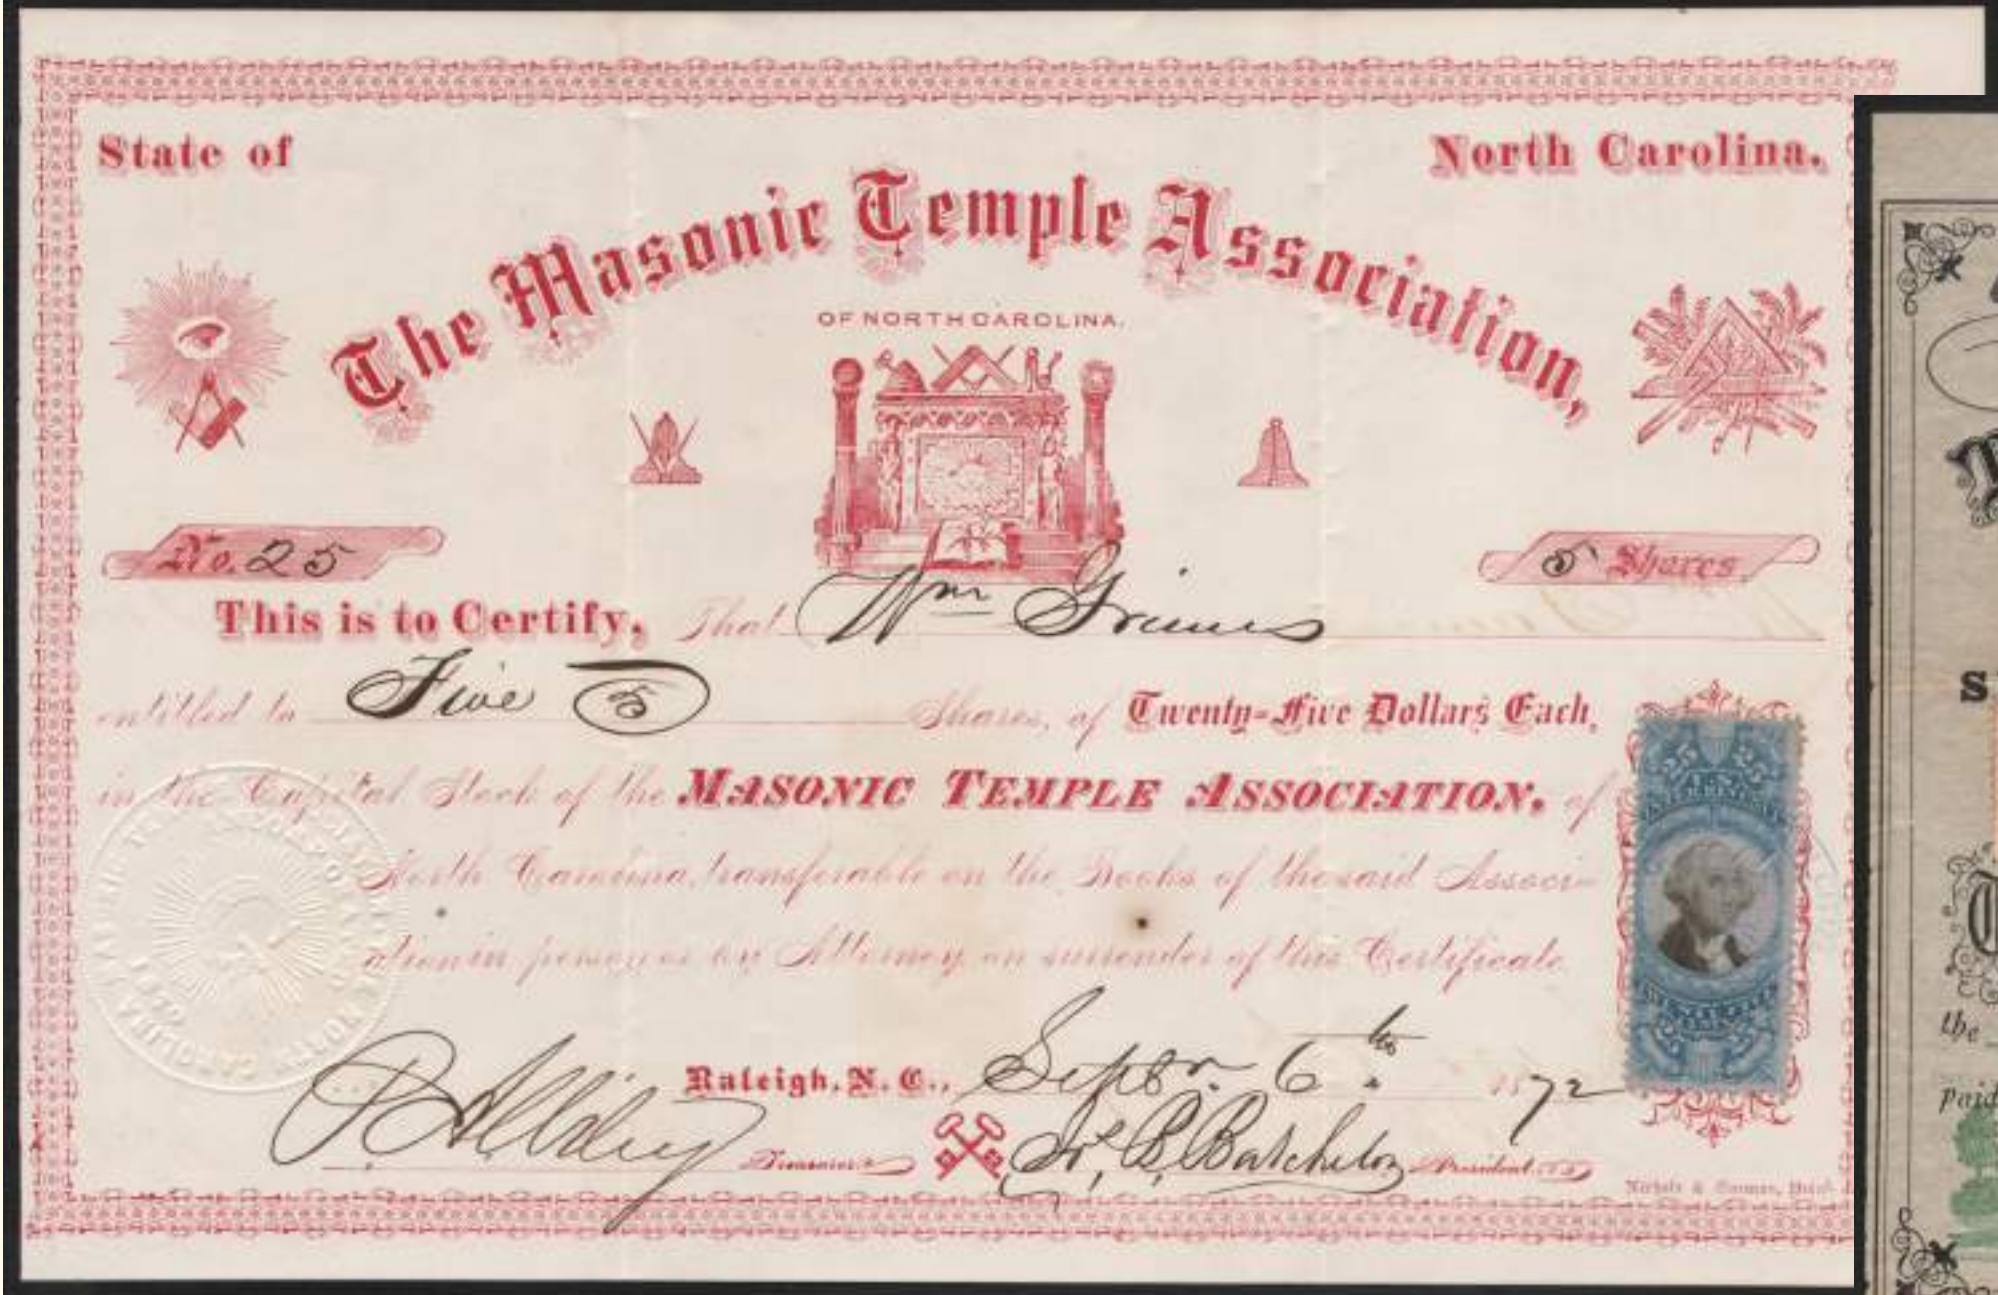 State of
North Carolina.
The Masonic Temple Association,
OF NORTH CAROLINA.
No. 25
5 Shares
This is to Certify, That Wm Grimes
entitled to Five 5 Shares, of Twenty-Five Dollars Each,
in the Capital Stock of the MASONIC TEMPLE ASSOCIATION, of
North Carolina, transferable on the Books of the said Associ-
ation in person or by Attorney on surrender of this Certificate
Raleigh, N. C., Septbr. 6th 1872
Treasurer
Jos. B. Batchelor President
Nichols & Gorman,
25 25
U.S.
INTER. REV.
MASONIC TEMPLE ASSOCIATION OF NORTH CAROLINA
INCORPORATED
1870
S
the
paid